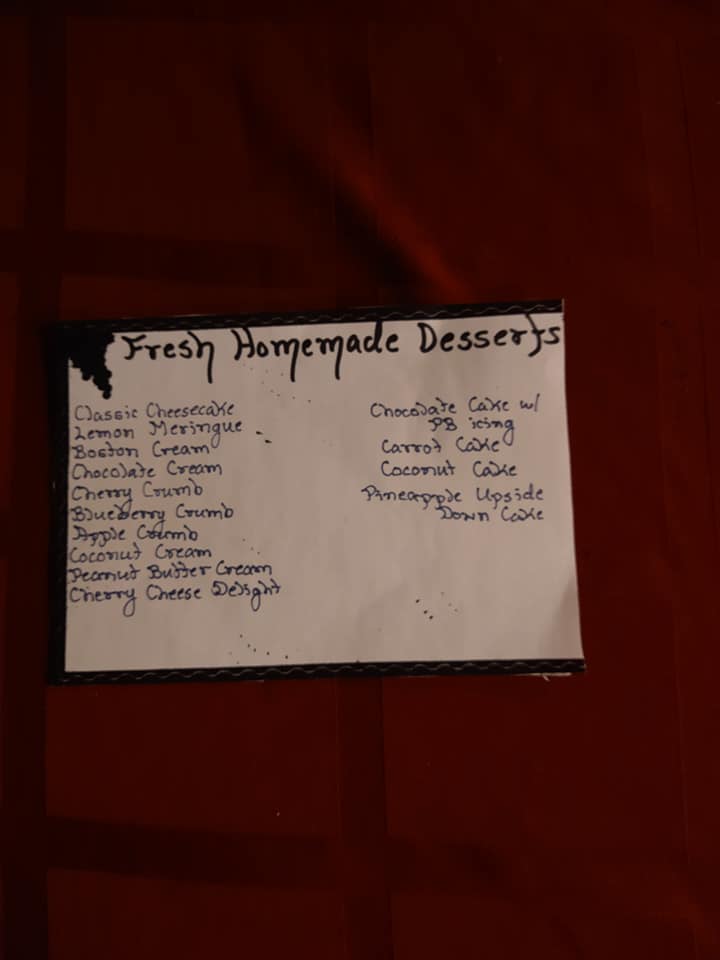 Fresh Homemade Desserts
Classic Cheesecake
Lemon Meringue
Boston Cream
Chocolate Cream
Cherry Crumb
Blueberry Crumb
Apple Crumb
Coconut Cream
Peanut Butter Cream
Cherry Cheese Delight
Chocolate Cake w/
PB icing
Carrot Cake
Coconut Cake
Pineapple Upside
Down Cake